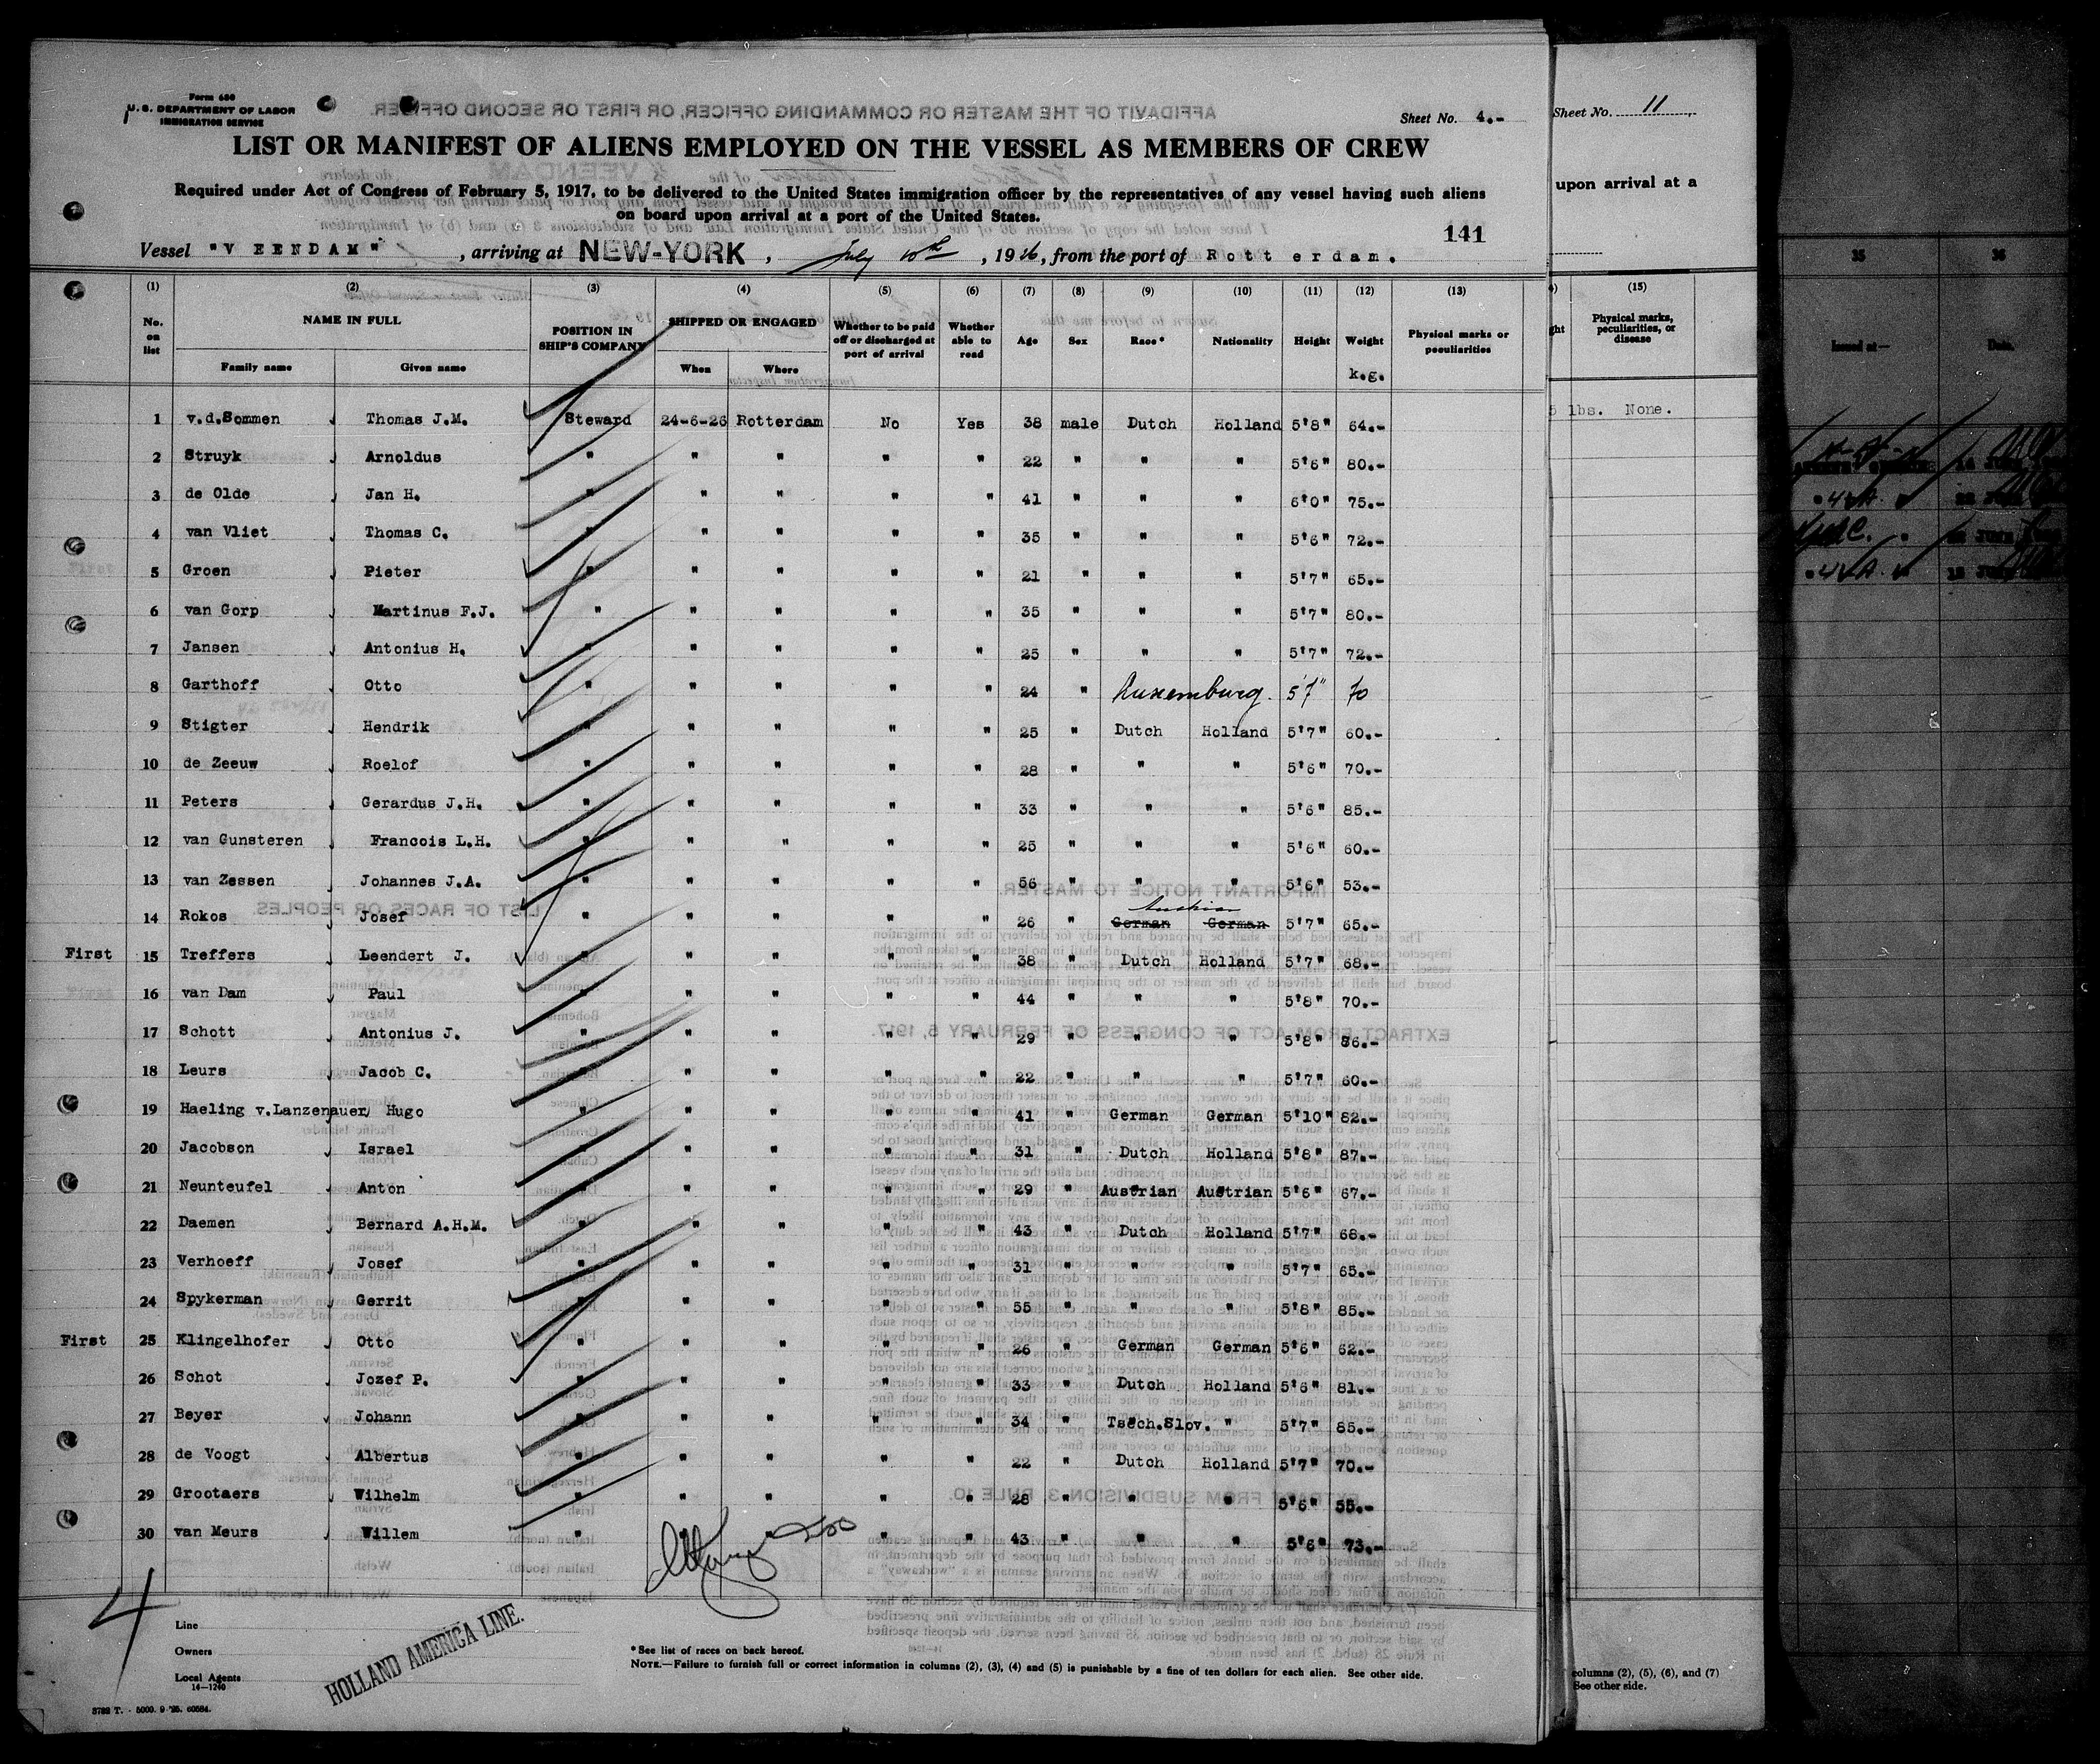 Form 680
U. S. DEPARTMENT OF LABOR
IMMIGRATION SERVICE
Sheet No. 4.-
LIST OR MANIFEST OF ALIENS EMPLOYED ON THE VESSEL AS MEMBERS OF CREW
Required under Act of Congress of February 5, 1917, to be delivered to the United States immigration officer by the representatives of any vessel having such aliens
on board upon arrival at a port of the United States.
141
Vessel "V EENDAM" , arriving at NEW-YORK , July 10th , 1926, from the port of Rott erdam.
(1) (2) (3) (4) (5) (6) (7) (8) (9) (10) (11) (12) (13)
No. on list NAME IN FULL Family name Given name POSITION IN SHIP'S COMPANY SHIPPED OR ENGAGED When Where Whether to be paid off or discharged at port of arrival Whether able to read Age Sex Race* Nationality Height Weight k.g. Physical marks or peculiarities
1 v.d.Sommen Thomas J.M. Steward 24-6-26 Rotterdam No Yes 38 male Dutch Holland 5'8" 64.-
2 Struyk Arnoldus " " " " " 22 " " " 5'6" 80.-
3 de Olde Jan H. " " " " " 41 " " " 6'0" 75.-
4 van Vliet Thomas C. " " " " " 35 " " " 5'6" 72.-
5 Groen Pieter " " " " " 21 " " " 5'7" 65.-
6 van Gorp Martinus F.J. " " " " " 35 " " " 5'7" 80.-
7 Jansen Antonius H. " " " " " 25 " " " 5'7" 72.-
8 Garthoff Otto " " " " " 24 " Luxemburg. 5'7" 70
9 Stigter Hendrik " " " " " 25 " Dutch Holland 5'7" 60.-
10 de Zeeuw Roelof " " " " " 28 " " " 5'6" 70.-
11 Peters Gerardus J.H. " " " " " 33 " " " 5'6" 85.-
12 van Gunsteren Francois L.H. " " " " " 25 " " " 5'6" 60.-
13 van Zessen Johannes J.A. " " " " " 56 " " " 5'6" 53.-
14 Rokos Josef " " " " " 26 " German German Austrian 5'7" 65.-
First 15 Treffers Leendert J. " " " " " 38 " Dutch Holland 5'7" 68.-
16 van Dam Paul " " " " " 44 " " " 5'8" 70.-
17 Schott Antonius J. " " " " " 29 " " " 5'8" 86.-
18 Leurs Jacob C. " " " " " 22 " " " 5'7" 60.-
19 Haeling v.Lanzenauer Hugo " " " " " 41 " German German 5'10" 82.-
20 Jacobson Israel " " " " " 31 " Dutch Holland 5'8" 87.-
21 Neunteufel Anton " " " " " 29 " Austrian Austrian 5'6" 67.-
22 Daemen Bernard A.H.M. " " " " " 43 " Dutch Holland 5'7" 68.-
23 Verhoeff Josef " " " " " 31 " " " 5'7" 65.-
24 Spykerman Gerrit " " " " " 55 " " " 5'8" 85.-
First 25 Klingelhofer Otto " " " " " 26 " German German 5'6" 62.-
26 Schot Jozef P. " " " " " 33 " Dutch Holland 5'6" 81.-
27 Beyer Johann " " " " " 34 " Tsech.Slov. " 5'7" 85.-
28 de Voogt Albertus " " " " " 22 " Dutch Holland 5'7" 70.-
29 Grootaers Wilhelm " " " " " 28 " " " 5'6" 55.-
30 van Meurs Willem " " " " " 43 " " " 5'6" 73.-
4
Line
Owners
Local Agents
HOLLAND AMERICA LINE.
14—1240
3782 T. - 5000. 9 '25. 60584.
*See list of races on back hereof.
NOTE.—Failure to furnish full or correct information in columns (2), (3), (4) and (5) is punishable by a fine of ten dollars for each alien. See other side.
Sheet No. 11
upon arrival at a
(15)
Physical marks, peculiarities, or disease
5 lbs. None.
columns (2), (5), (6), and (7)
See other side.
35 36
Issued at— Date.